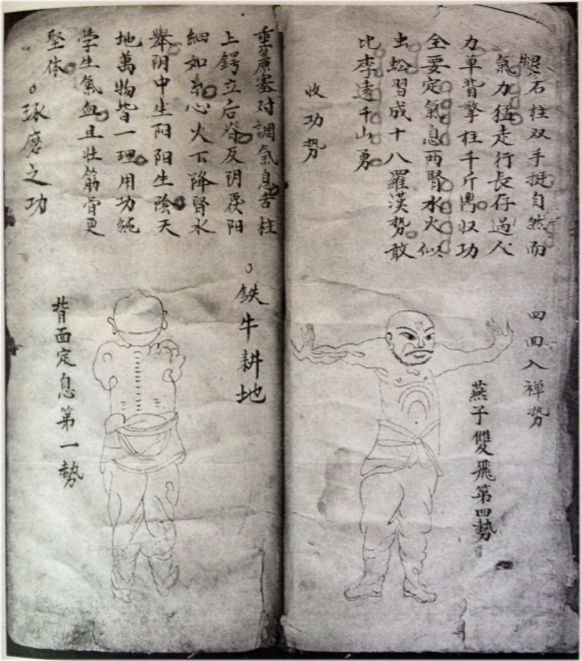 石柱双手挺自然而
氣力猛走行長存過人
力单背擎柱千斤鼎収功
全要定氣息两腎水火似
虫松習成十八羅漢勢散
比李遠千山勇
收功勢
四回入禅勢
燕子雙飛第四勢
重塞对調氣息舌柱
上鍔立后脊反阴戾阳
細如糸心火下降腎水
舉阴中生阳阳生陰天
地萬物皆一理用功純
学生氣血且壮筋骨更
堅体
。琢磨之功
。鉄牛耕地
背面定息第一勢